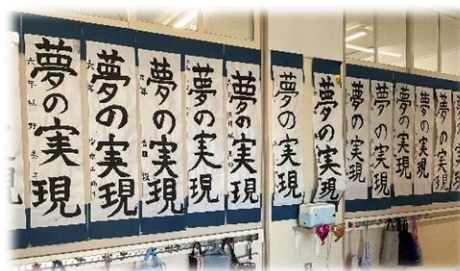 夢の実現
夢の実現
夢の実現
夢の実現
夢の実現
夢の実現
夢の実現
夢の実現
夢の実現
夢の実現
夢の実現
夢の実現
夢の実現